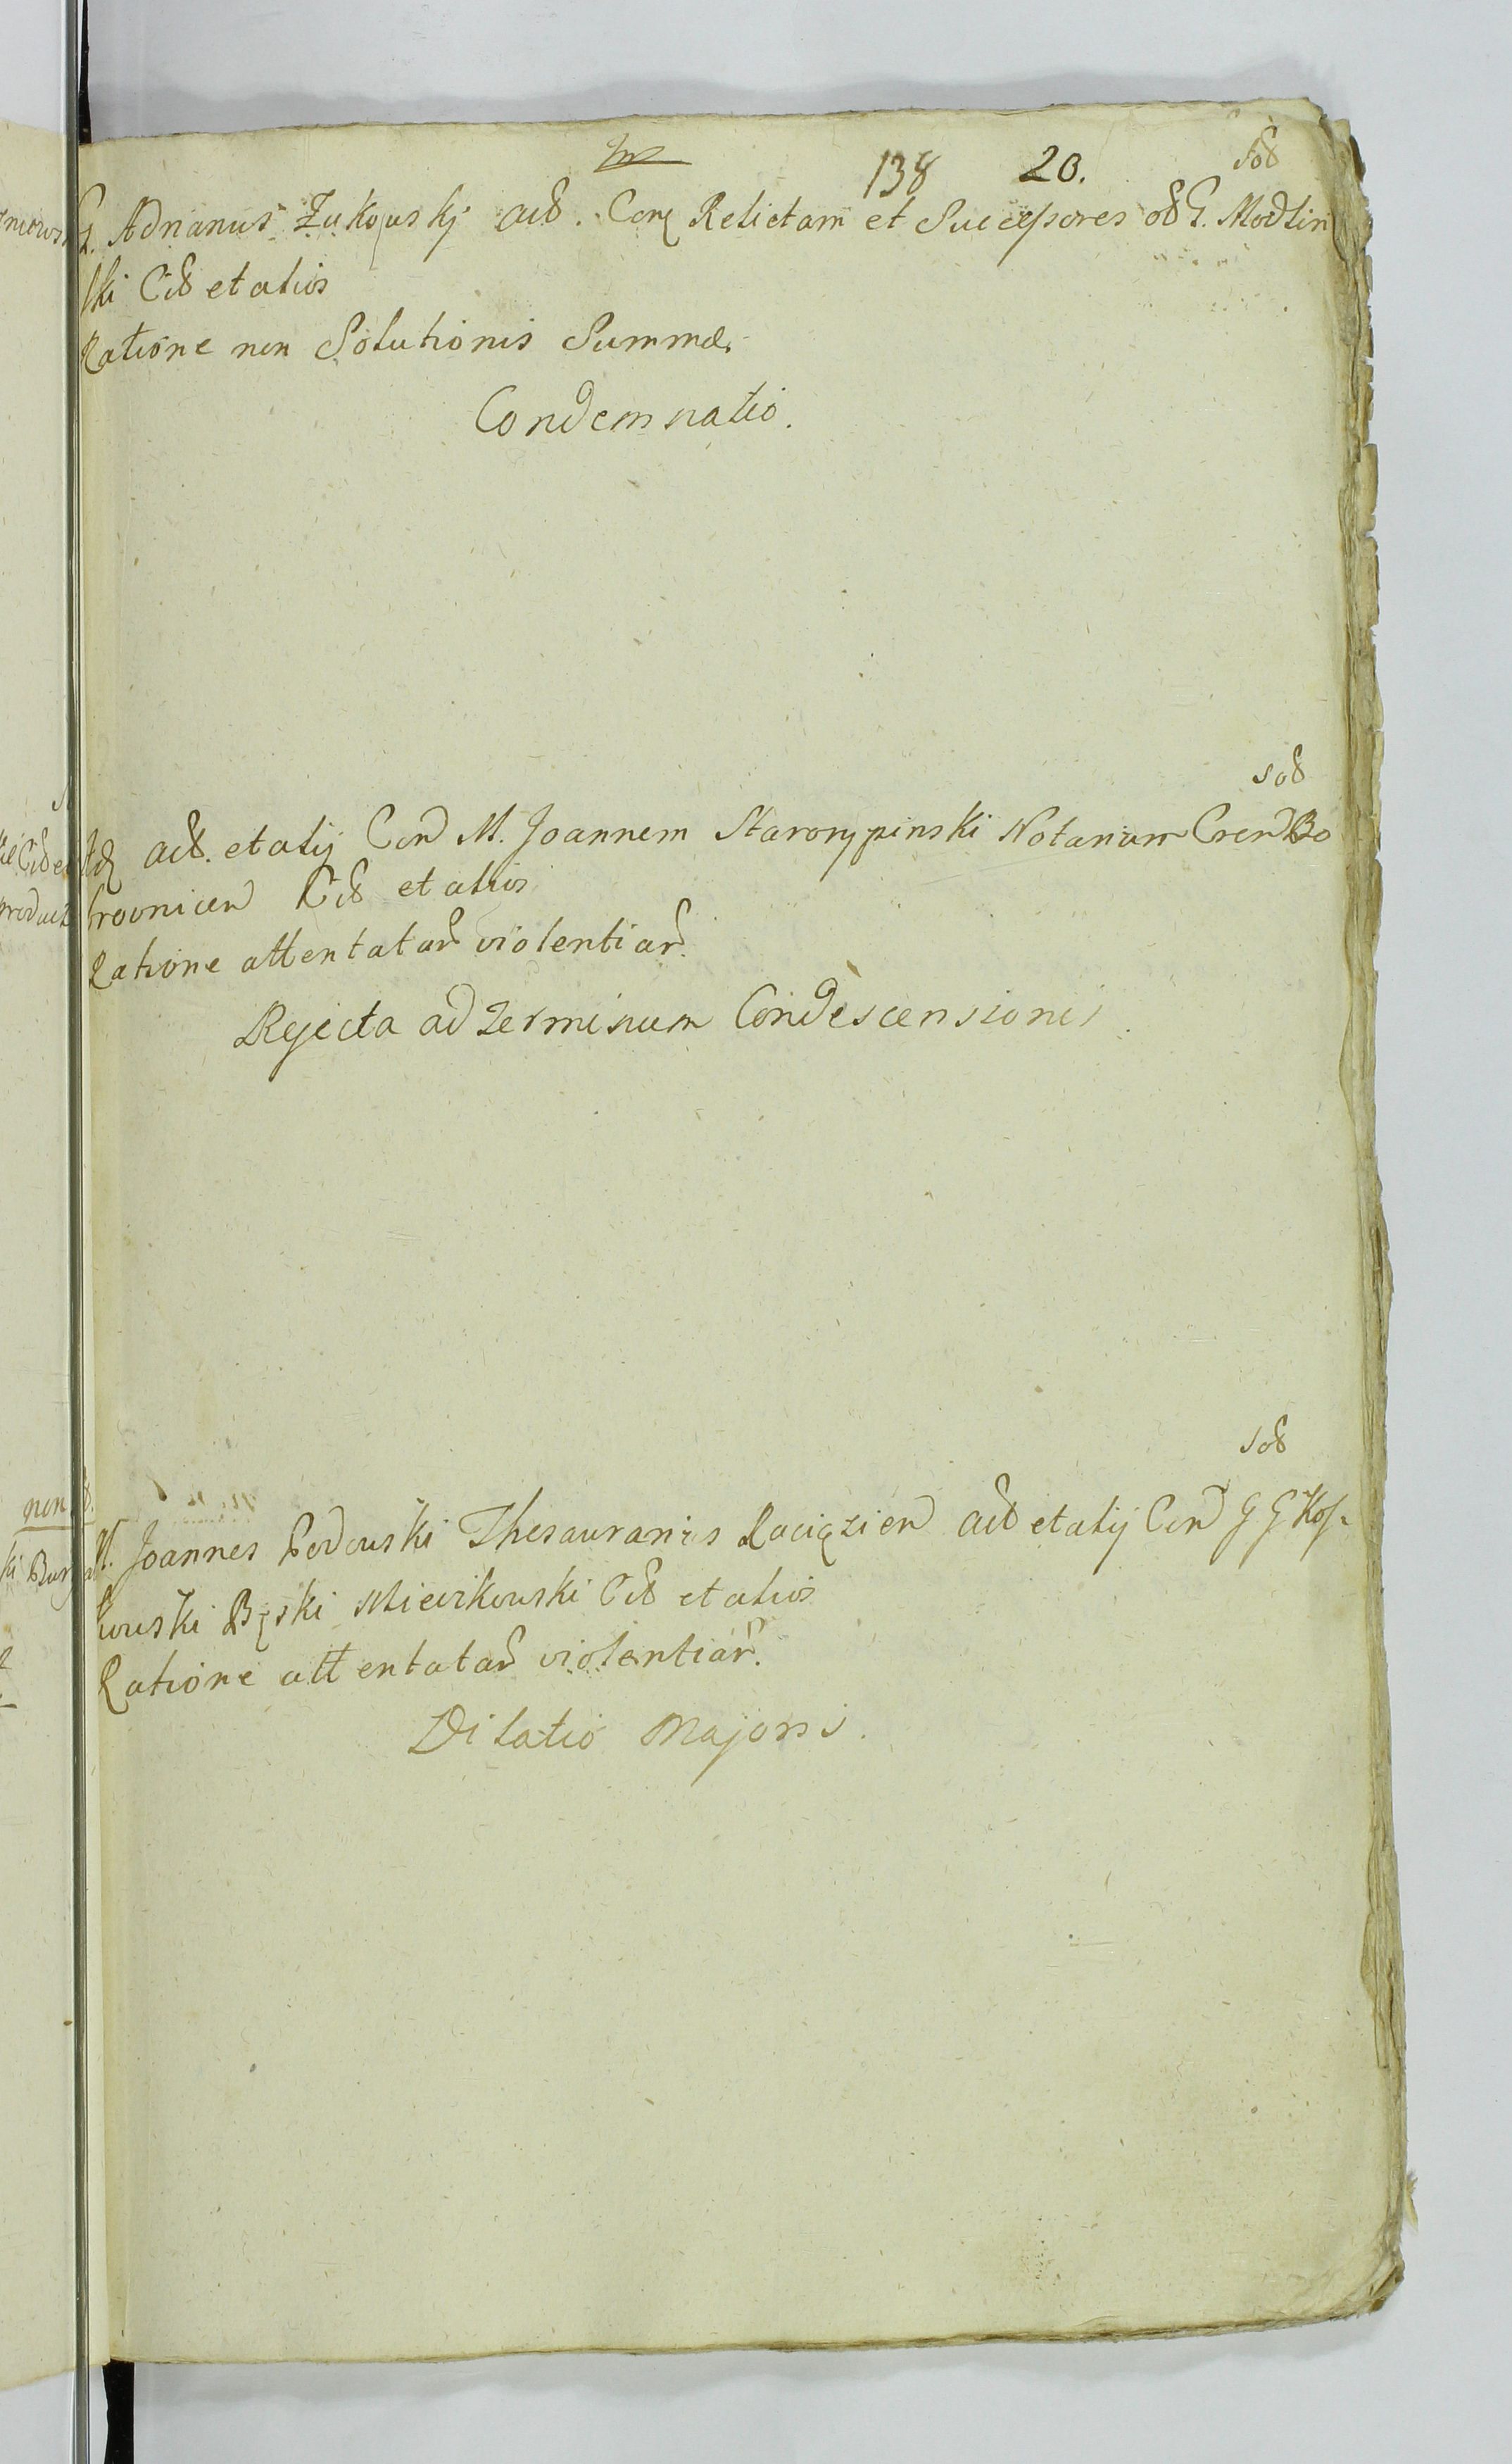 138 20. Sol
G. Adrianus Zukowskj act. Con Relictam et Successores ol G. Modlin
ski Cit et alios
Ratione non Solutionis Summæ.
Condemnatio.
Sol
Id act. et alij Con M. Joannem Staroryпinski Notarium Cren Bo
brovnicen Cit et alios
Ratione attentatar violentiar.
Rejecta ad Terminum Condescensionis.
Sol
M. Joannes Podowski Thesauranus Raciązien act et alij Con G G Kos-
kowski Bęski Miecikowski Cit et alios
Ratione attentatar violentiar.
Dilatio Majoris.